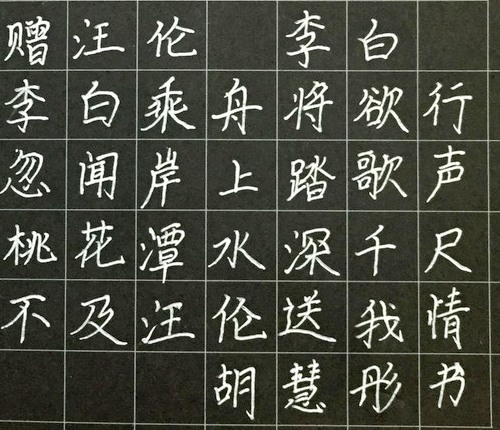 赠汪伦 李白
李白乘舟将欲行
忽闻岸上踏歌声
桃花潭水深千尺
不及汪伦送我情
胡慧彤书